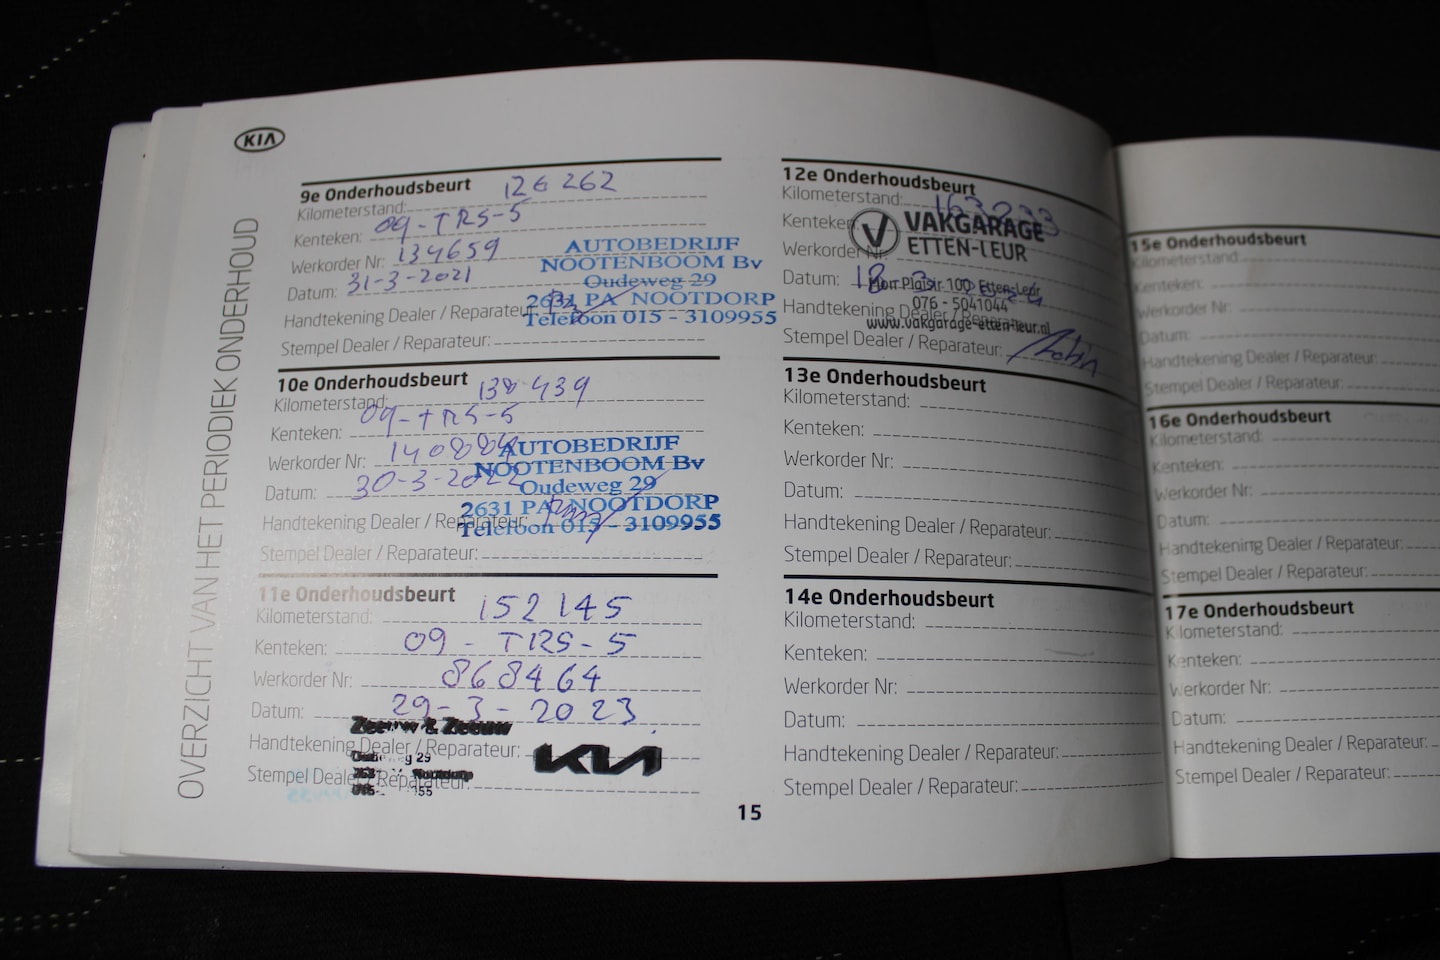 KIA
OVERZICHT VAN HET PERIODIEK ONDERHOUD
9e Onderhoudsbeurt
Kilometerstand: 126 262
Kenteken: 09-TRS-5
Werkorder Nr: 134659
Datum: 31-3-2021
Handtekening Dealer / Reparateur:
Stempel Dealer / Reparateur:
AUTOBEDRIJF
NOOTENBOOM Bv
Oudeweg 29
2631 PA NOOTDORP
Telefoon 015 - 3109955
10e Onderhoudsbeurt
Kilometerstand: 138 439
Kenteken: 09-TRS-5
Werkorder Nr: 140884
Datum: 30-3-2022
Handtekening Dealer / Reparateur:
Stempel Dealer / Reparateur:
AUTOBEDRIJF
NOOTENBOOM Bv
Oudeweg 29
2631 PA NOOTDORP
Telefoon 015 - 3109955
11e Onderhoudsbeurt
Kilometerstand: 152 145
Kenteken: 09 - TRS - 5
Werkorder Nr: 868464
Datum: 29-3-2023
Handtekening Dealer / Reparateur:
Stempel Dealer / Reparateur:
Zeeuw & Zeeuw
29
Nootdorp
KIA
12e Onderhoudsbeurt
Kilometerstand: 163233
Kenteken:
Werkorder Nr:
Datum: 18
Handtekening Dealer / Reparateur:
Stempel Dealer / Reparateur:
VAKGARAGE
ETTEN-LEUR
Mon Plaisir 100 Etten-Leur
076 - 5041044
www.vakgarage-etten-leur.nl
13e Onderhoudsbeurt
Kilometerstand:
Kenteken:
Werkorder Nr:
Datum:
Handtekening Dealer / Reparateur:
Stempel Dealer / Reparateur:
14e Onderhoudsbeurt
Kilometerstand:
Kenteken:
Werkorder Nr:
Datum:
Handtekening Dealer / Reparateur:
Stempel Dealer / Reparateur:
15
15e Onderhoudsbeurt
Kilometerstand:
Kenteken:
Werkorder Nr:
Datum:
Handtekening Dealer / Reparateur:
Stempel Dealer / Reparateur:
16e Onderhoudsbeurt
Kilometerstand:
Kenteken:
Werkorder Nr:
Datum:
Handtekening Dealer / Reparateur:
Stempel Dealer / Reparateur:
17e Onderhoudsbeurt
Kilometerstand:
Kenteken:
Werkorder Nr:
Datum:
Handtekening Dealer / Reparateur:
Stempel Dealer / Reparateur: